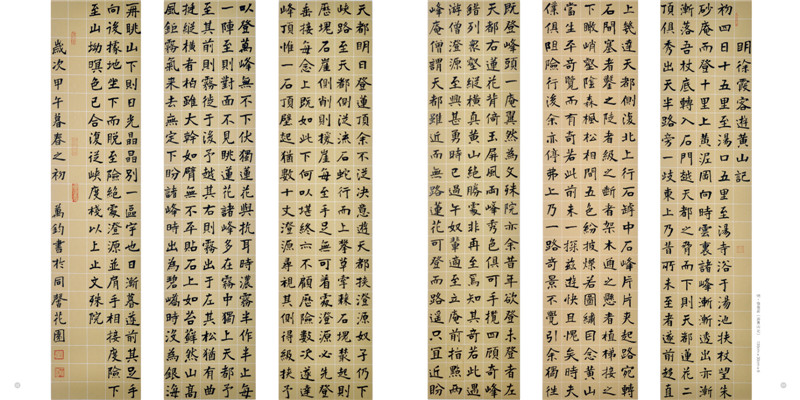 明徐霞客遊黃山記
初四日十五里至湯口五里至湯寺浴于湯池扶杖望朱
砂庵而登十里上黃泥岡向時雲裏諸峰漸漸透出亦漸
漸落吾杖底轉入石門越天都之脅而下則天都蓮花二
頂俱秀出天半路旁一歧東上乃昔所未至者遂前趨直
上幾達天都側復北上行石罅中石峰片片夾起路宛轉
石間塞者鑿之陡者級之斷者架木通之懸者植梯接之
下瞰峭壑陰森楓松相間五色紛披燦若圖繡因念黃山
當生平奇覽而有奇若此前未一探茲遊快且愧矣時夫
僕俱阻險行後余亦停弗上乃一路奇景不覺引余獨往
既登峰頭一庵翼然為文殊院亦余昔年欲登未登者左
天都右蓮花背倚玉屏風兩峰秀色俱可手攬四顧奇峰
錯列眾壑縱橫真黃山絕勝處非再至焉知其奇若此遇
游僧澄源至興甚勇時已過午奴輩適至立庵前指點兩
峰庵僧謂天都雖近而無路蓮花可登而路遙只宜近盼
天都明日登蓮頂余不從決意遊天都挾澄源奴子仍下
峽路至天都側從流石蛇行而上攀草牽棘石塊叢起則
歷塊石崖側削則援崖每至手足無可著處澄源必先登
垂接每念上既如此下何以堪終亦不顧歷險數次遂達
峰頂惟一石頂壁起猶數十丈澄源尋視其側得級挾予
以登萬峰無不下伏獨蓮花與抗耳時濃霧半作半止每
一陣至則對面不見眺蓮花諸峰多在霧中獨上天都予
至其前則霧徙于後予越其右則霧出于左其松猶有曲
挺縱橫者柏雖大幹如臂無不平貼石上如苔蘚然山高
風鉅霧氣來去無定下盼諸峰時出為碧嶠時沒為銀海
再眺山下則日光晶晶別一區宇也日漸暮遂前其足手
向後據地坐下而脫至險絕處澄源並肩手相接度險下
至山坳暝色已合復從峽度棧以上止文殊院
歲次甲午暮春之初 萬鈞書於同磬花園